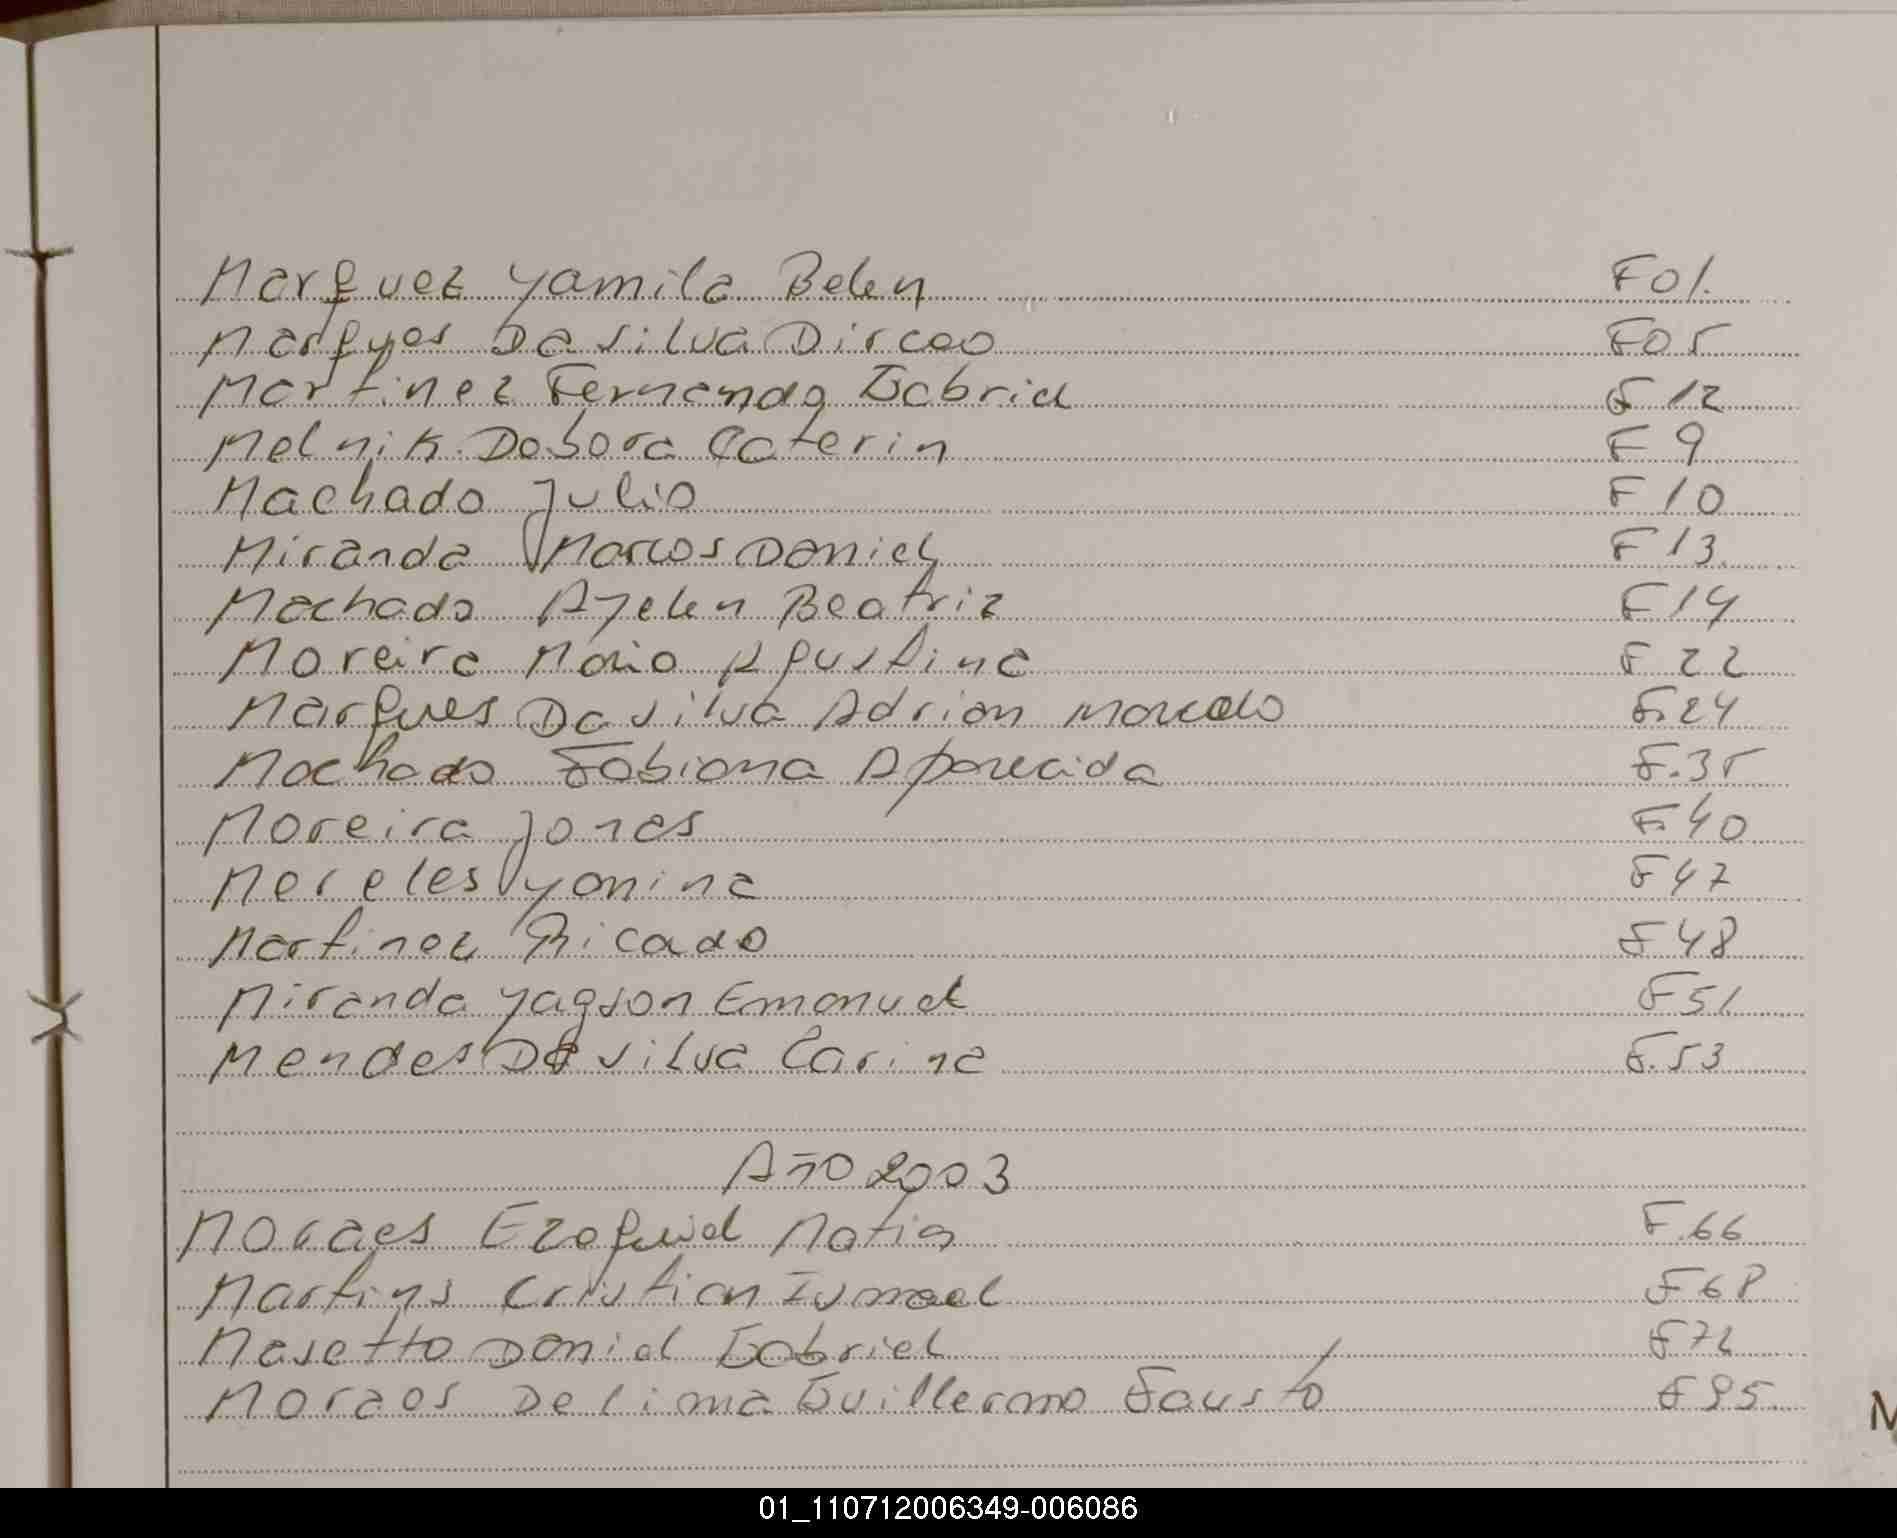 Marquez Yamila Belen F01.
Marques Da Silva Dirceo F05
Martinez Fernando Gabriel F12
Melnik Debora Caterin F 9
Machado Julio F 10
Miranda Marcos Daniel F 13
Machado Ayelen Beatriz F 14
Moreira Maria Agustina F 22
Marques Da Silva Adrian Marcelo F.24
Machado Fabiana Aparecida F.35
Moreira Jonas F.40
Mereles Yanina F47
Martinez Ricado F48
Miranda Yagson Emanuel F51
Mendes Da Silva Carina F.53
Año 2003
Moraes Ezequiel Matias F.66
Martins Cristian Ismael F68
Masetto Daniel Gabriel
Moraes De Lima Guillermo Fausto F95.
M
01_110712006349-006086